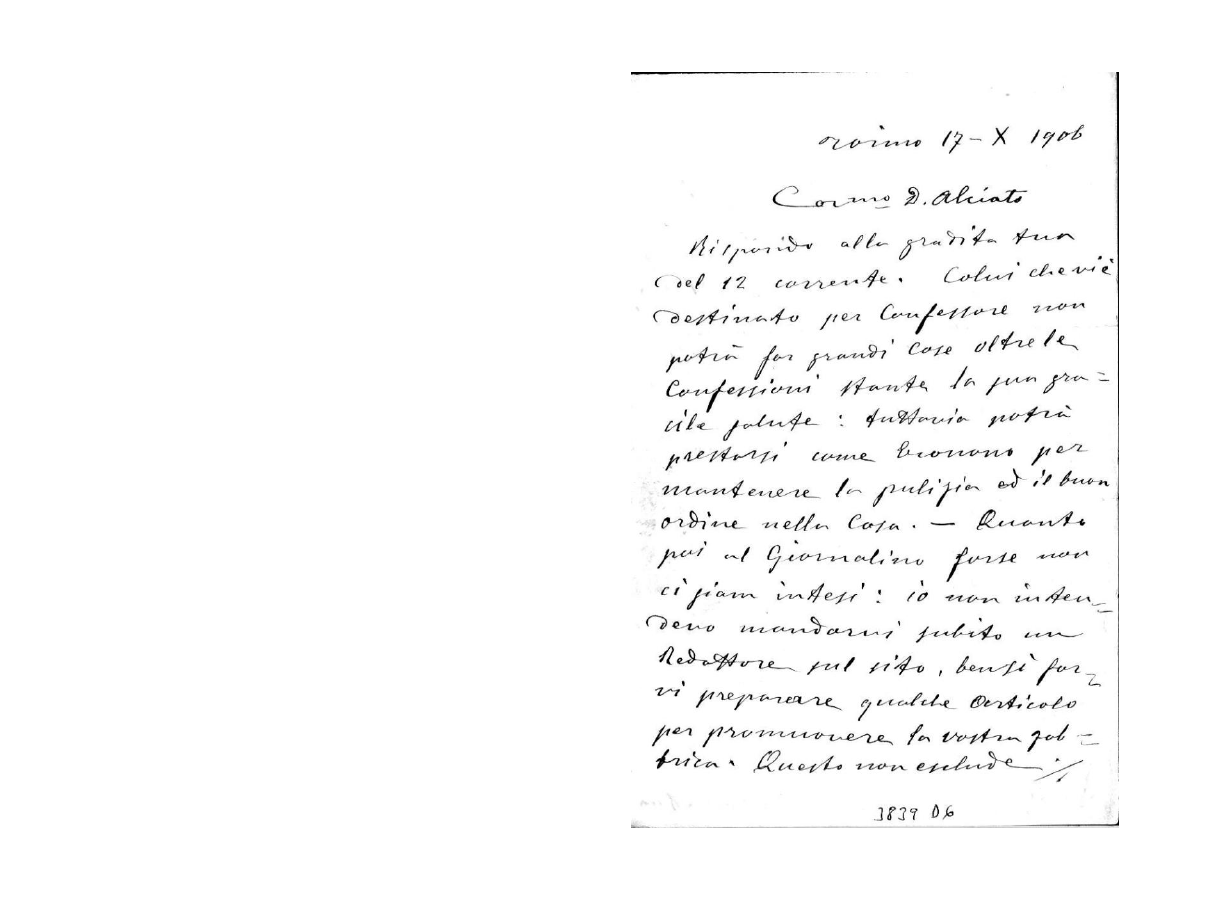 Torino 17 - X 1906
Carmo D. Alciato
Rispondo alla gradita tua
del 12 corrente. Colui che vi è
destinato per Confessore non
potrà far grandi cose oltre le
Confessioni stante la sua gra=
cile salute: tuttavia potrà
prestarsi come Economo per
mantenere la pulizia ed il buon
ordine nella Casa. — Quanto
poi al Giornalino forse non
ci siam intesi: io non inten=
devo mandarvi subito un
Redattore sul sito, bensì far=
vi preparare qualche articolo
per promuovere la vostra fab=
brica. Questo non esclude ./.
3839 D6